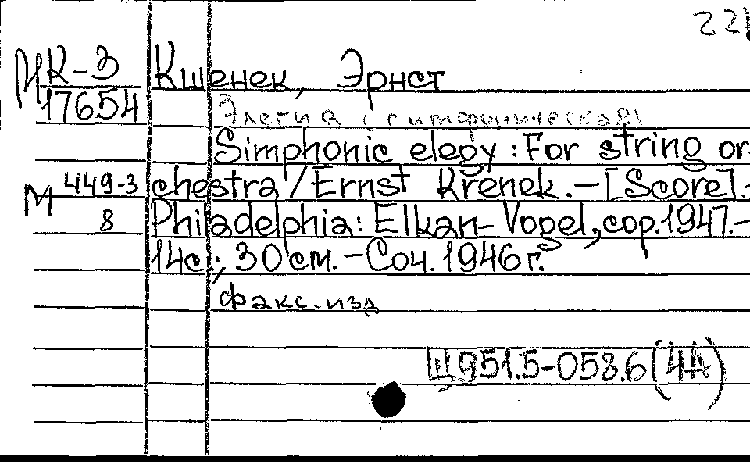 221
М К-3 Кшенек, Эрнст
17654
Элегия (симфоническая)
Simphonic elegy : For string or
М 449-3 chestra / Ernst Krenek. – [Score]. -
8 Philadelphia: Elkan-Vogel, cop. 1947. –
14с.; 30 см. – Соч. 1946 г.
факс. изд
Щ951.5-058.6(4А)